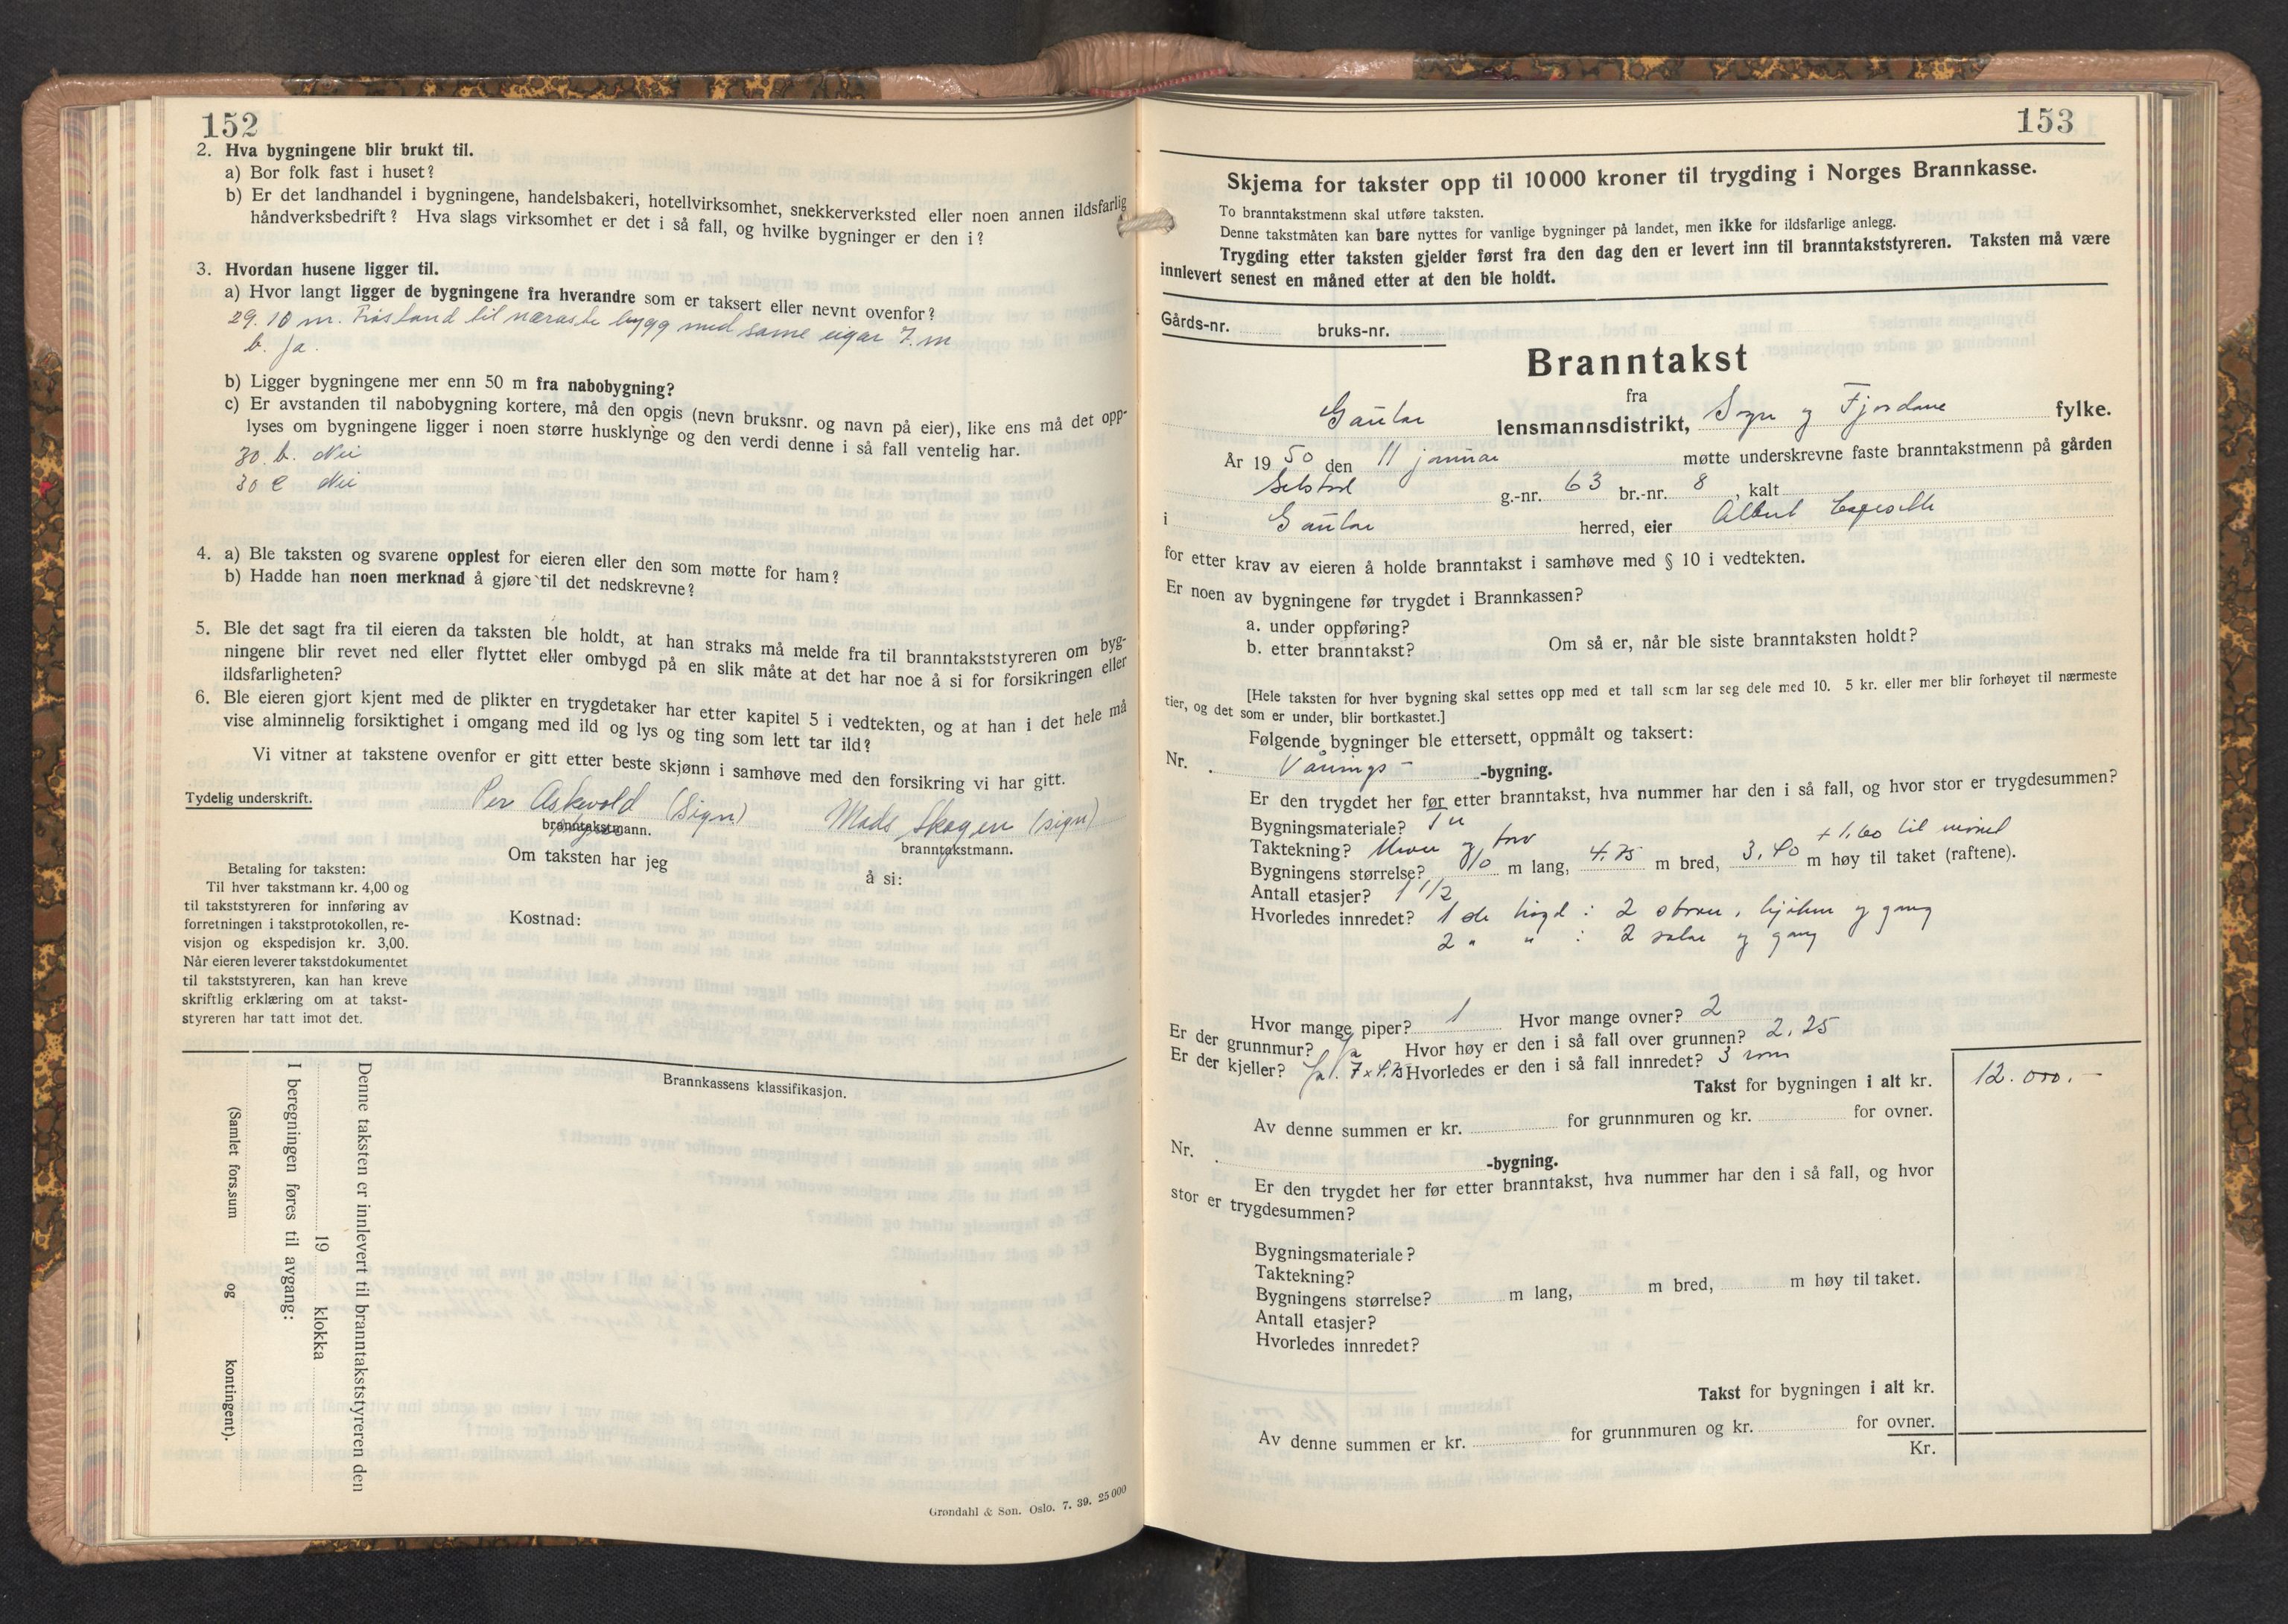 152
2. Hva bygningene blir brukt til.
a) Bor folk fast i huset?
b) Er det landhandel i bygningene, handelsbakeri, hotellvirksomhet, snekkerverksted eller noen annen ildsfarlig
håndverksbedrift? Hva slags virksomhet er det i så fall, og hvilke bygninger er den i?
3. Hvordan husene ligger til.
a) Hvor langt ligger de bygningene fra hverandre som er taksert eller nevnt ovenfor?
29. 10 m. Fråstand til næraste bygg med same eigar 7. m
b. Ja.
b) Ligger bygningene mer enn 50 m fra nabobygning?
c) Er avstanden til nabobygning kortere, må den opgis (nevn bruksnr. og navn på eier), like ens må det opp-
lyses om bygningene ligger i noen større husklynge og den verdi denne i så fall ventelig har.
30. b. Nei
30 c Nei
4. a) Ble taksten og svarene opplest for eieren eller den som møtte for ham?
b) Hadde han noen merknad å gjøre til det nedskrevne?
5. Ble det sagt fra til eieren da taksten ble holdt, at han straks må melde fra til branntakststyreren om byg-
ningene blir revet ned eller flyttet eller ombygd på en slik måte at det har noe å si for forsikringen eller
ildsfarligheten?
6. Ble eieren gjort kjent med de plikter en trygdetaker har etter kapitel 5 i vedtekten, og at han i det hele må
vise alminnelig forsiktighet i omgang med ild og lys og ting som lett tar ild?
Vi vitner at takstene ovenfor er gitt etter beste skjønn i samhøve med den forsikring vi har gitt.
Tydelig underskrift. Per Askevold (Sign) Mads Skogen (sign)
branntakstmann. branntakstmann.
Om taksten har jeg å si:
Kostnad:
Betaling for taksten:
Til hver takstmann kr. 4,00 og
til takststyreren for innføring av
forretningen i takstprotokollen, re-
visjon og ekspedisjon kr. 3,00.
Når eieren leverer takstdokumentet
til takststyreren, kan han kreve
skriftlig erklæring om at takst-
styreren har tatt imot det.
Brannkassens klassifikasjon.
Denne taksten er innlevert til branntakststyreren den
19 klokka
I beregningen føres til avgang:
(Samlet fors.sum og kontingent).
Grøndahl & Søn. Oslo. 7. 39. 25 000
153
Skjema for takster opp til 10 000 kroner til trygding i Norges Brannkasse.
To branntakstmenn skal utføre taksten.
Denne takstmåten kan bare nyttes for vanlige bygninger på landet, men ikke for ildsfarlige anlegg.
Trygding etter taksten gjelder først fra den dag den er levert inn til branntakststyreren. Taksten må være
innlevert senest en måned etter at den ble holdt.
Gårds-nr. bruks-nr.
Branntakst
fra
Gaular lensmannsdistrikt, Sogn og Fjordane fylke.
År 1950 den 11 januar møtte underskrevne faste branntakstmenn på gården
g.-nr. 63 br.-nr. 8, kalt
i Gaular herred, eier Albert
for etter krav av eieren å holde branntakst i samhøve med § 10 i vedtekten.
Er noen av bygningene før trygdet i Brannkassen?
a. under oppføring?
b. etter branntakst? Om så er, når ble siste branntaksten holdt?
[Hele taksten for hver bygning skal settes opp med et tall som lar seg dele med 10. 5 kr. eller mer blir forhøyet til nærmeste
tier, og det som er under, blir bortkastet.]
Følgende bygninger ble ettersett, oppmålt og taksert:
Nr. Vånings -bygning.
Er den trygdet her før etter branntakst, hva nummer har den i så fall, og hvor stor er trygdesummen?
Bygningsmateriale? Tre
Taktekning? Never og torv + 1,60 til mønet
Bygningens størrelse? 8/0 m lang, 4.75 m bred, 3,40 m høy til taket (raftene).
Antall etasjer? 1 1/2
Hvorledes innredet? 1ste høgd: 2 stover, kjøken og gang
2 " " : 2 salar og gang
Hvor mange piper? 1 Hvor mange ovner? 2
Er der grunnmur? ja Hvor høy er den i så fall over grunnen? 2.25
Er der kjeller? Ja. 7 x 4.75 Hvorledes er den i så fall innredet? 3 rom
Takst for bygningen i alt kr. 12.000.-
Av denne summen er kr. for grunnmuren og kr. for ovner.
Nr. -bygning.
Er den trygdet her før etter branntakst, hva nummer har den i så fall, og hvor
stor er trygdesummen?
Bygningsmateriale?
Taktekning?
Bygningens størrelse? m lang, m bred, m høy til taket.
Antall etasjer?
Hvorledes innredet?
Takst for bygningen i alt kr.
Av denne summen er kr. for grunnmuren og kr. for ovner.
Kr.